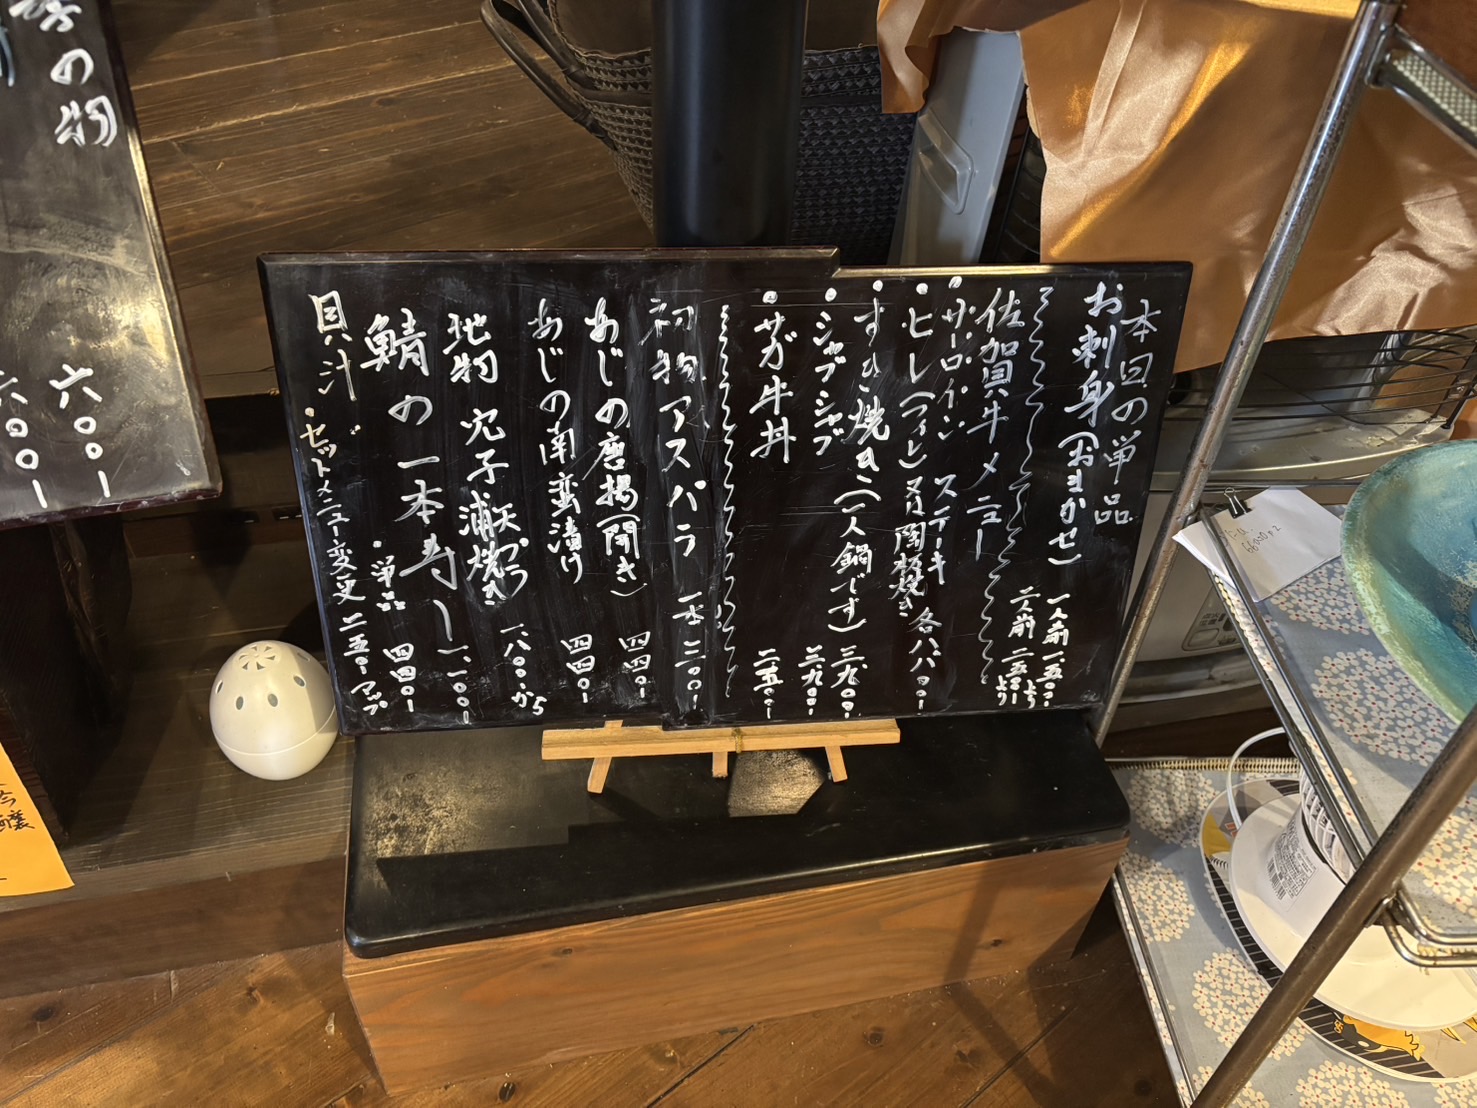 本日の単品
お刺身(おまかせ) 一人前 一、五〇〇より
二人前 二、五〇〇より
佐賀牛メニュー
・サーロイン ステーキ
・ヒレ(フィレ) 又は陶板焼き 各八、八〇〇-
・すき焼き(一人鍋です) 三、九〇〇-
・シャブシャブ 三、九〇〇-
・サガ牛丼 二、五〇〇-
初物 アスパラ 一本 三〇〇-
あじの唐揚(開き) 四四〇-
あじの南蛮漬け 四四〇-
地物 穴子蒲焼き 天ぷら 一、八〇〇-から
鯖の一本寿し 一、一〇〇-
貝汁 ・単品 四四〇-
・セットメニュー変更 二五〇-アップ
の物
六〇〇-
六〇〇-